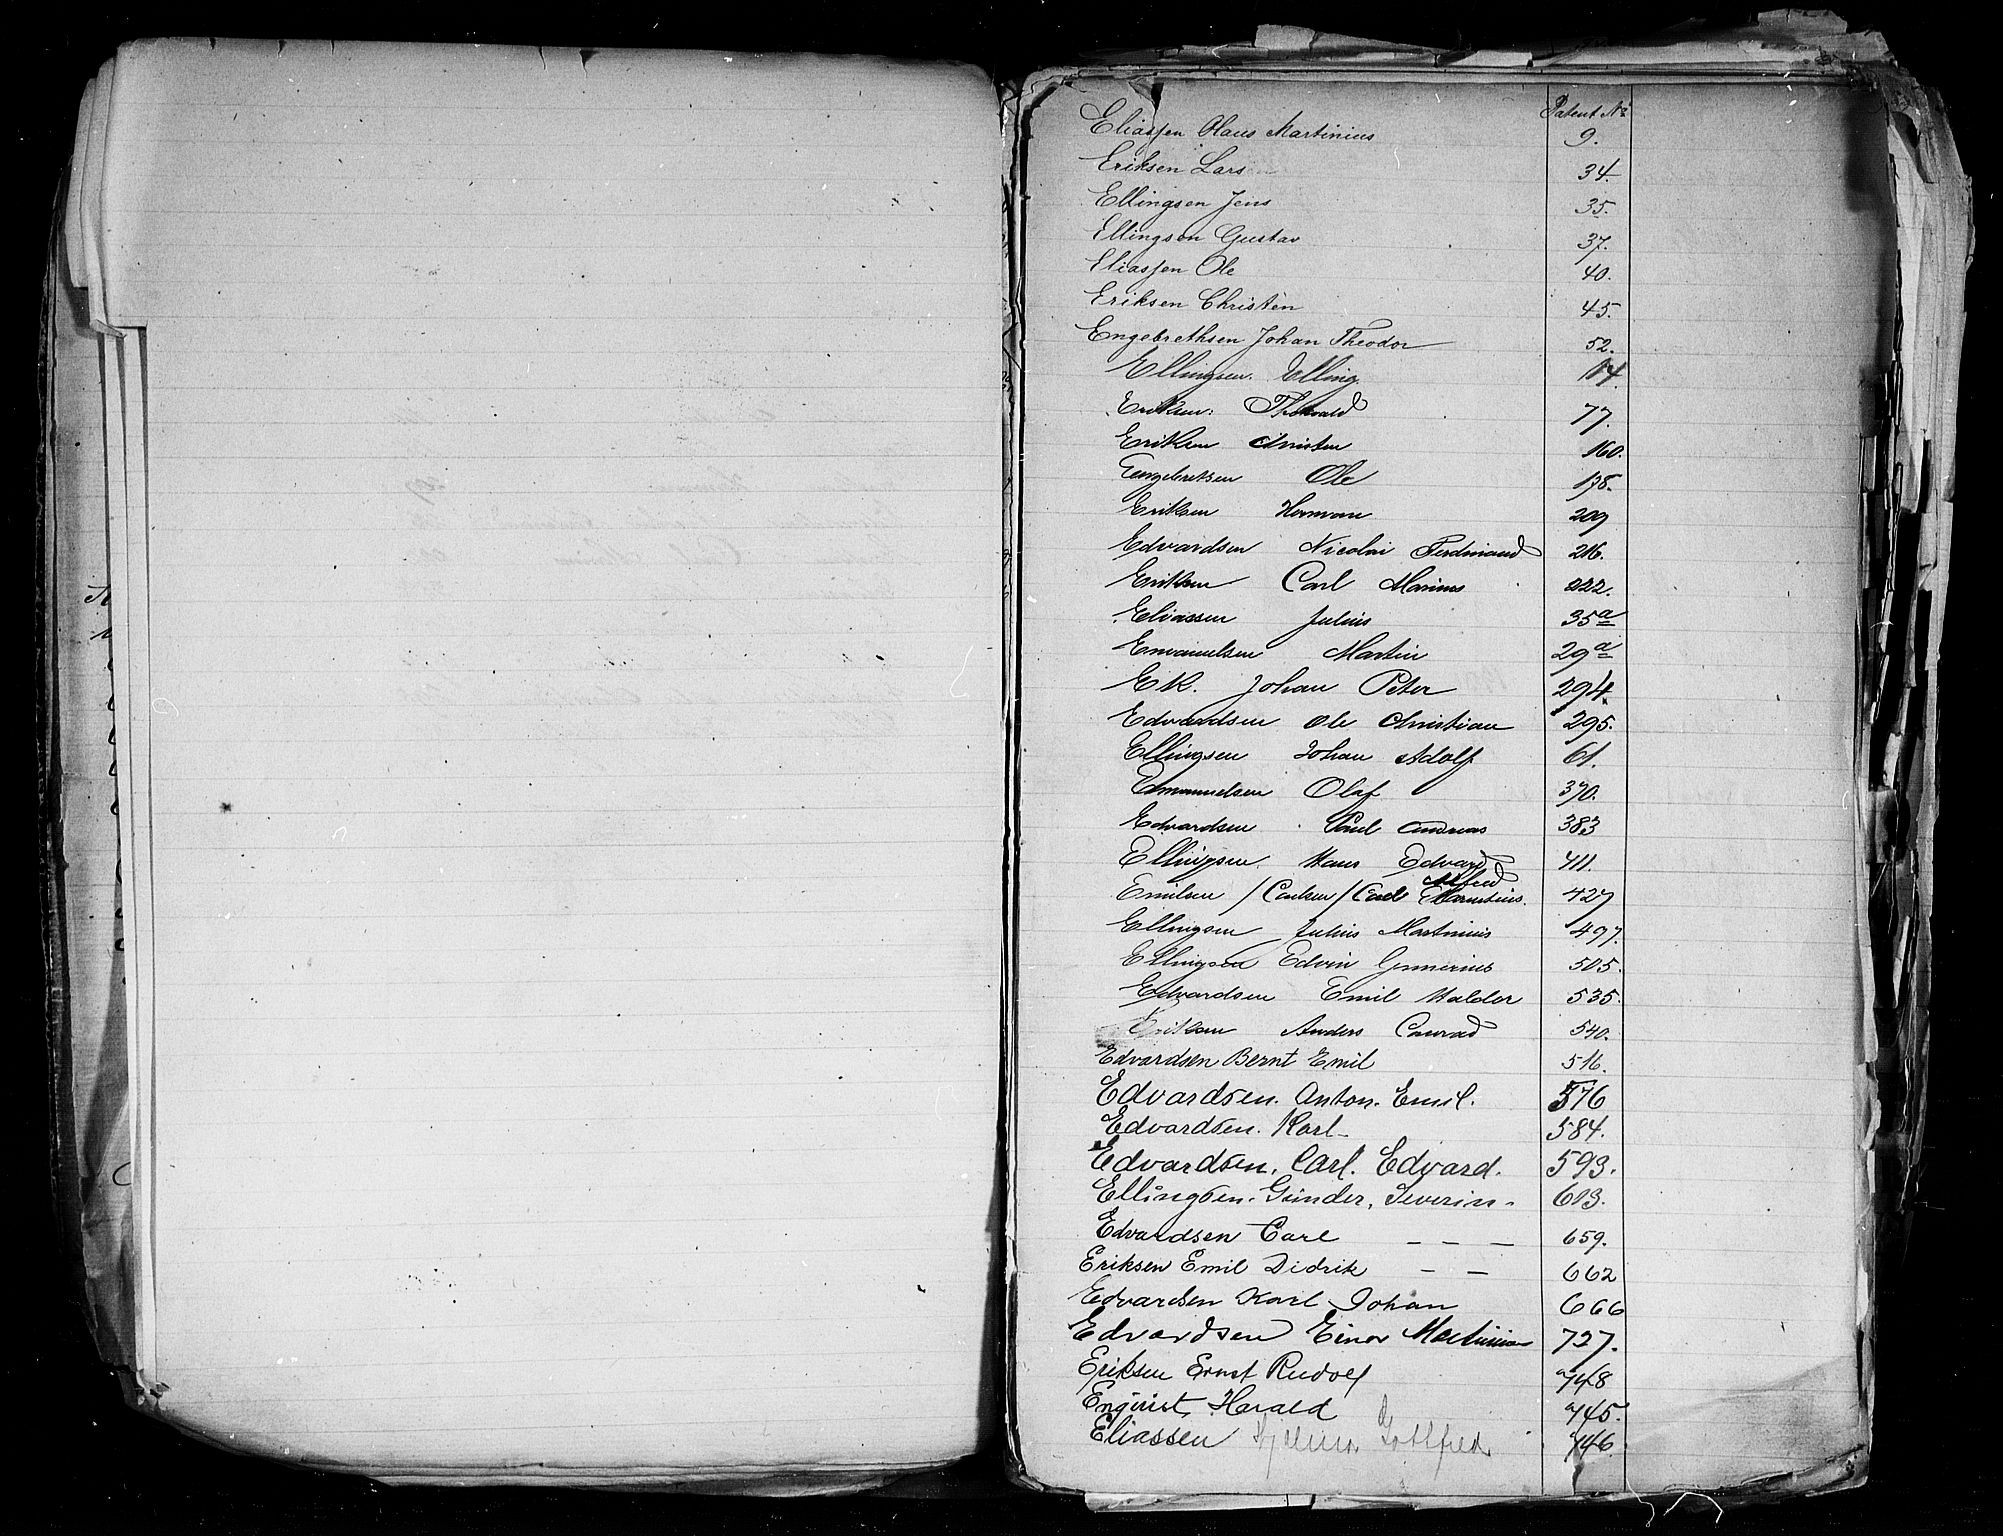 Patent No
Eliassen Olaus Martinius 9.
Eriksen Lars 34.
Ellingsen Jens 35.
Ellingsen Gustav 37.
Eliassen Ole 40.
Eriksen Christen 45.
Engebrethsen Johan Theodor 52.
Ellingsen Elling
Eriksen Thorvald 77.
Eriksen Christen 160.
Engebretsen Ole 178.
Eriksen Herman 209
Edvardsen Nicolai Ferdinand 216.
Eriksen Carl Marius 222.
Eliassen Julius 35a
Emanuelsen Martin 29a
Ek. Johan Peter 294.
Edvardsen Ole Christian 295.
Ellingsen Johan Adolf 61.
Emanuelsen Olaf 370.
Edvardsen Paul Andreas 383
Ellingsen Hans Edvard 411.
Alfred
Emilsen / Carlsen / Carl 427
Ellingsen Julius Martinius 497.
Ellingsen Edvin 505.
Edvardsen Emil Haldor 535.
Eriksen Anders Conrad 540.
Edvardsen Bernt Emil 516.
Edvardsen. Anton. Emil. 576
Edvardsen. Karl 584.
Edvardsen, Carl. Edvard. 593.
Ellingsen. Gunder, Severin - 603.
Edvardsen Carl — — — 659.
Eriksen Emil Didrik — — 662
Edvardsen Karl Johan 666
Edvardsen Einar Martinius 727.
Eriksen Ernst Rudolf 748
Enqvist, Harald 745.
Eliassen Hjalmar Gottfred 746.